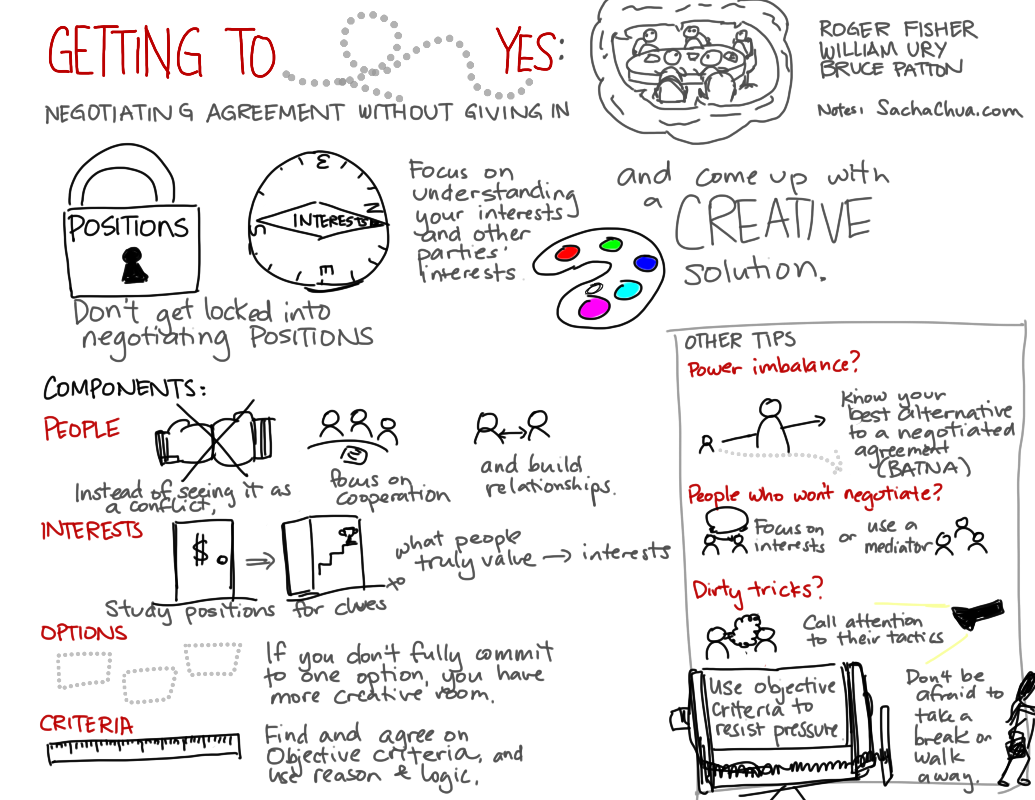 GETTING TO YES:
NEGOTIATING AGREEMENT WITHOUT GIVING IN
ROGER FISHER
WILLIAM URY
BRUCE PATTON
Notes: SachaChua.com
POSITIONS
Don't get locked into
negotiating POSITIONS
INTERESTS
N
E
S
W
Focus on
understanding
your interests
and other
parties'
interests
and come up with
a
CREATIVE
solution.
COMPONENTS:
PEOPLE
Instead of seeing it as
a conflict,
focus on
cooperation
and build
relationships.
INTERESTS
$
Study positions for clues to
what people
truly value → interests
OPTIONS
If you don't fully commit
to one option, you have
more creative room.
CRITERIA
Find and agree on
Objective criteria, and
use reason & logic.
OTHER TIPS
Power imbalance?
Know your
best alternative
to a negotiated
agreement
(BATNA)
People who won't negotiate?
Focus on
interests
or
use a
mediator
Dirty tricks?
Call attention
to their tactics
Use objective
criteria to
resist pressure.
Don't be
afraid to
take a
break or
walk
away.